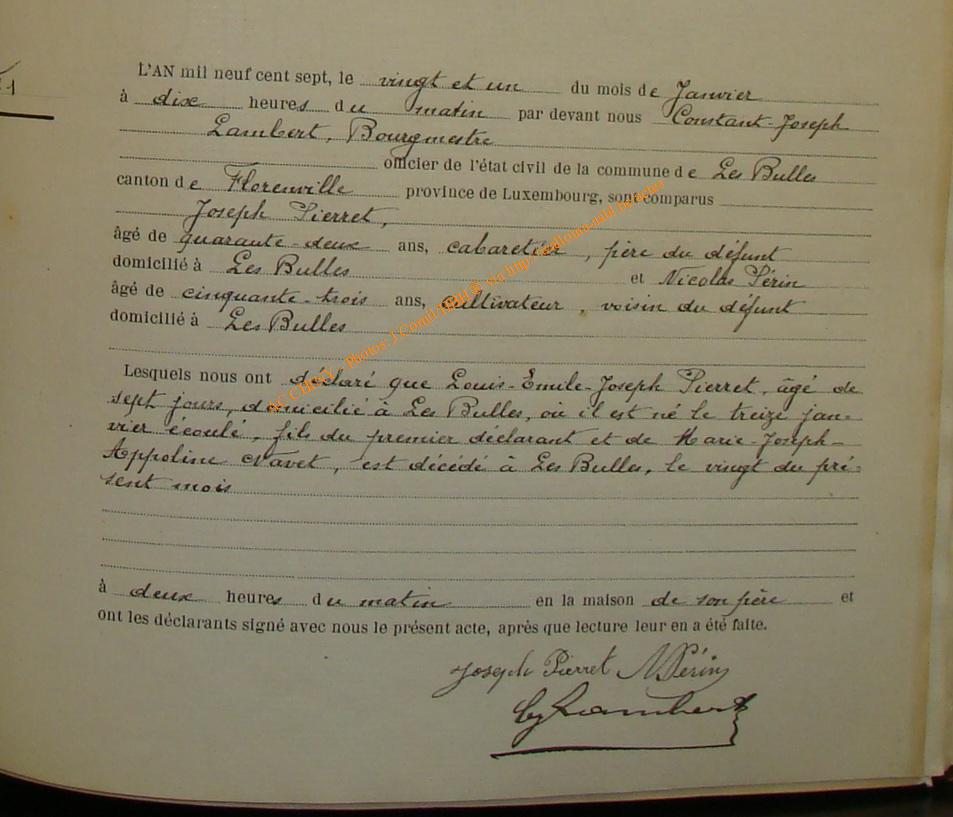 L'AN mil neuf cent sept, le vingt et un du mois de Janvier
à dix heures du matin par devant nous Constant-Joseph
Lambert, Bourgmestre
officier de l'état civil de la commune de Les Bulles
canton de Florenville province de Luxembourg, sont comparus
Joseph Pierret,
âgé de quarante-deux ans, cabaretier, père du défunt
domicilié à Les Bulles et Nicolas Périn
âgé de cinquante-trois ans, cultivateur, voisin du défunt
domicilié à Les Bulles
Lesquels nous ont déclaré que Louis-Emile-Joseph Pierret, âgé de
sept jours, domicilié à Les Bulles, où il est né le treize jan-
vier écoulé, fils du premier déclarant et de Marie-Joseph-
Appoline Navet, est décédé à Les Bulles, le vingt du pré-
sent mois
à deux heures du matin en la maison de son père et
ont les déclarants signé avec nous le présent acte, après que lecture leur en a été faite.
Joseph Pierret N Périn
Lambert